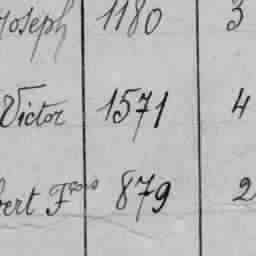 Joseph 1180 3
Victor 1571 4
bert Fçois 879 2